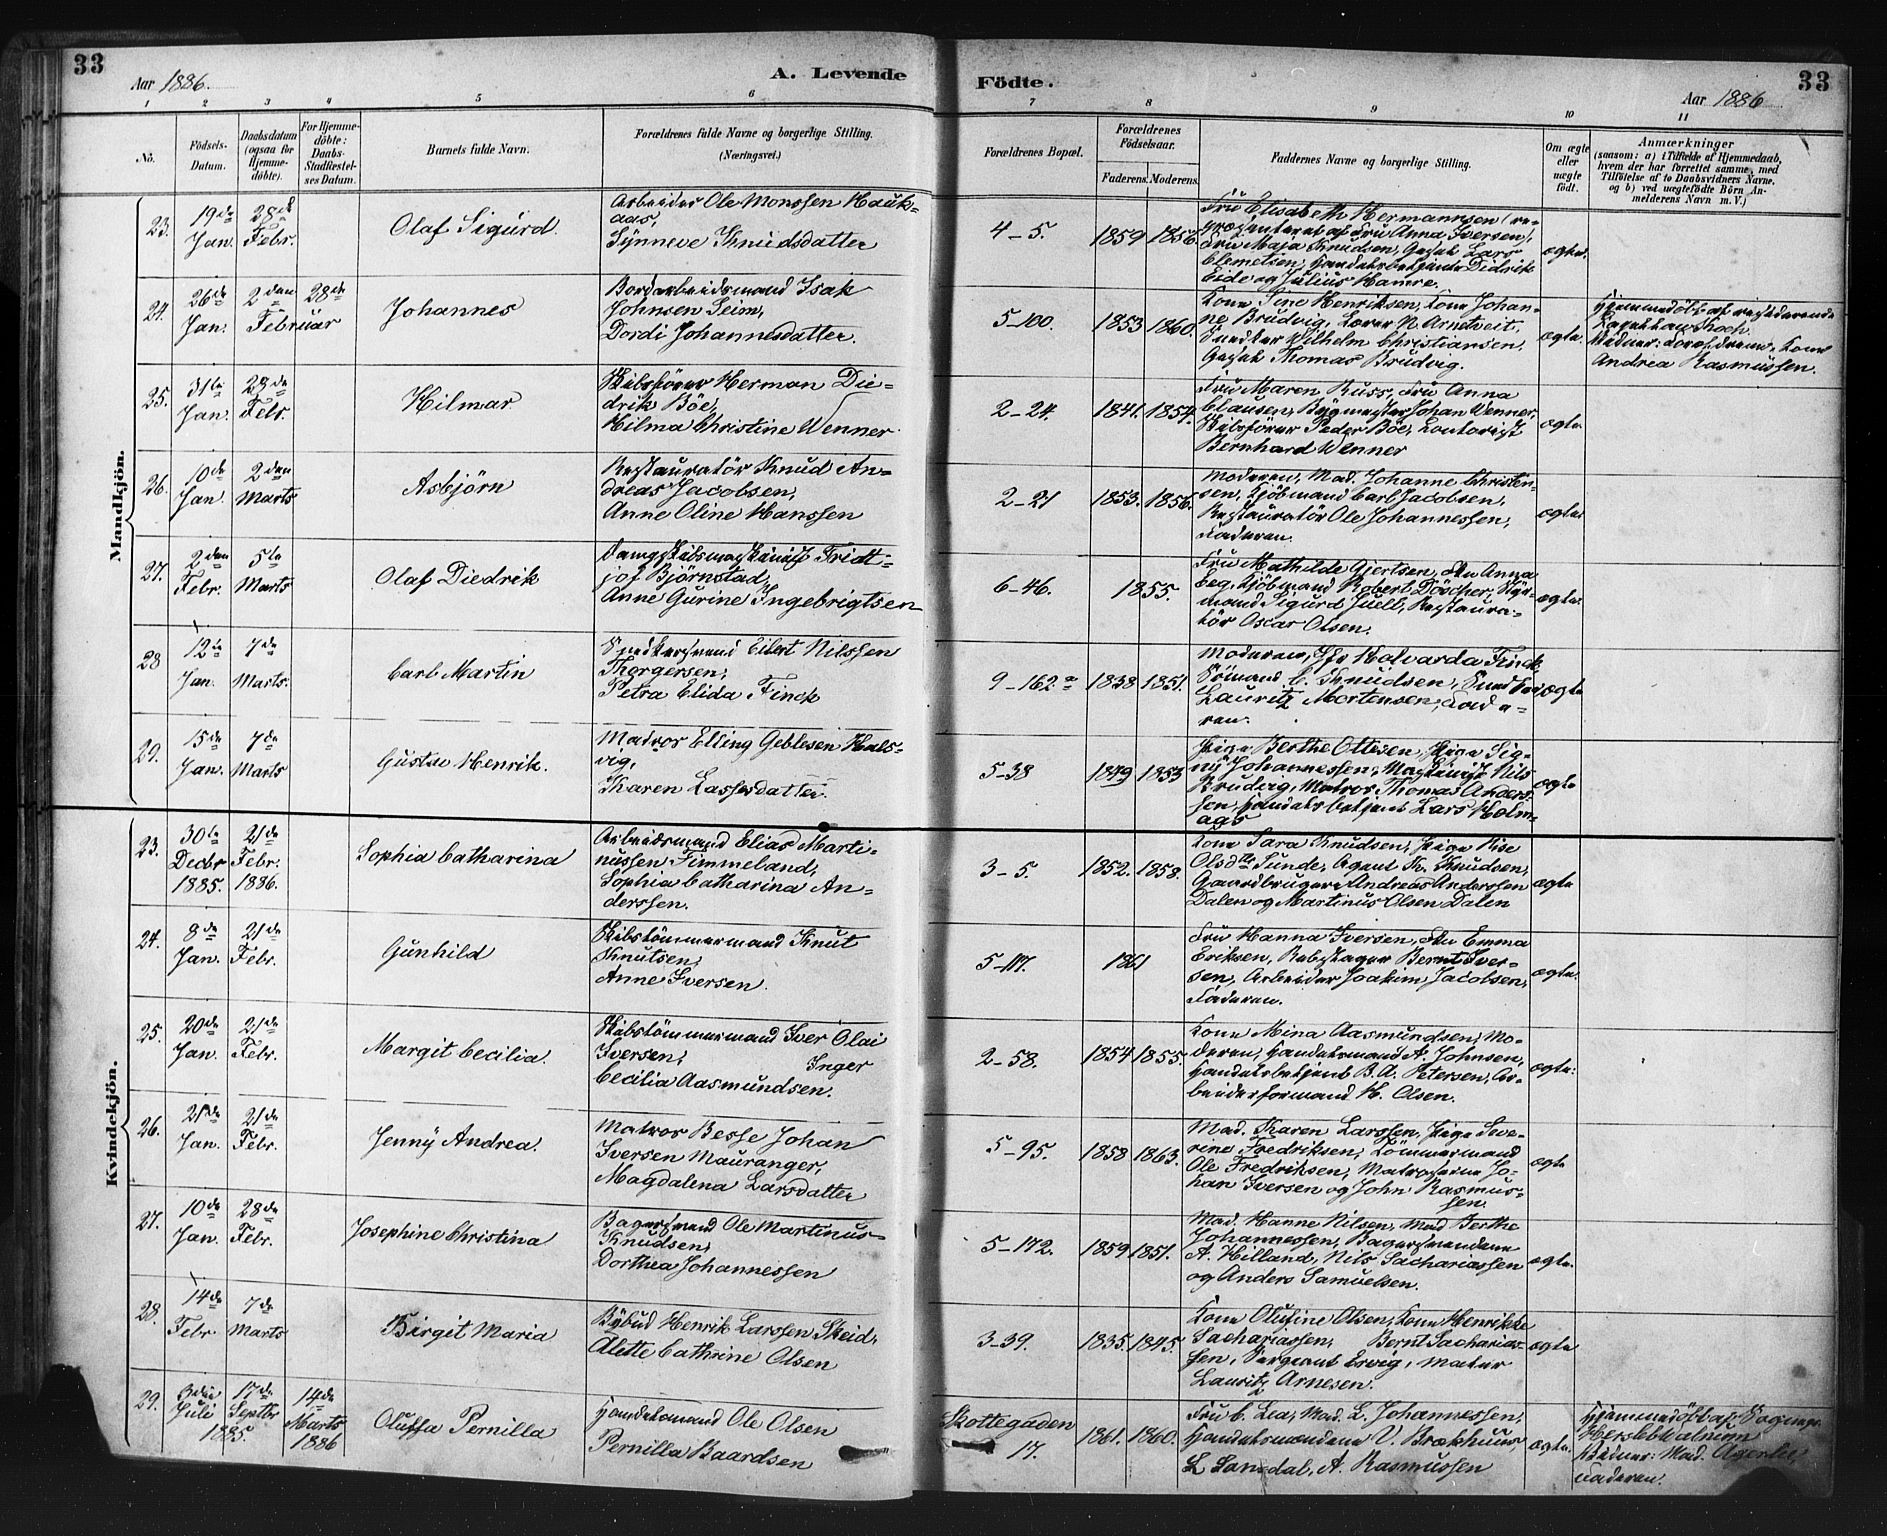 33
Aar 1886.
A. Levende
Födte.
Aar 1886
33
1 2 3 4 5 6 7 8 9 10 11
No.
Födsels-Datum.
Daabsdatum (ogsaa for Hjemme-döbte).
For Hjemme-döbte: Daabs-Stadfæstel-ses Datum.
Barnets fulde Navn.
Forældrenes fulde Navne og borgerlige Stilling. (Næringsvei.)
Forældrenes Bopæl.
Forældrenes Födselsaar.
Faderens. Moderens.
Faddernes Navne og borgerlige Stilling.
Om ægte eller uægte födt.
Anmærkninger
(saasom: a) i Tilfælde af Hjemmedaab, hvem der har forrettet samme, med Tilföielse af to Daabsvidners Navne, og b) ved uægtefödte Börn An-melderens Navn m. V.)
Mandkjön.
23. 19de Jan. 28de Febr. Olaf Sigurd. Arbeider Ole Monssen Hauk-
aas,
Synneve Knudsdatter
4-5. 1859 1856. Fru Elisabeth Hermannsen (re-
præsenteret af Fru Anna Iversen),
Fru Maja Knudsen, Gaselt Lars
Clemetsen, Handelsbetjente Didrik
Eide og Julius Hamre. ægte.
24. 26de Jan. 2den 28de Februar Johannes Bordarbeidsmand Isak
Johnsen Seim,
Dordi Johannesdatter.
5-100. 1853 1860. Kone Sine Henriksen, Kone Johan-
ne Brudvig, Lærer N. Arnetveit,
Snedker Wilhelm Christiansen,
Thomas Brudvig. ægte.
Hjemmedöbt af residerende
Kapellan Koch.
Vidner: Kone
Andrea Rasmussen.
25. 31te Jan. 28de Febr. Hilmar Skibsförer Herman Die-
drik Böe,
Hilma Christine Wenner
2-24. 1841. 1854. Fru Maren Russ, Fru Anna
Clausen, Bygmester Johan Wenner,
Skibsförer Peder Böe, Contorist
Bernhard Wenner ægte
26. 10de Jan. 2den Marts Asbjörn Restauratör Knud An-
dreas Jacobsen,
Anne Oline Hanssen
2-21 1853. 1856. Moderen, Mad. Johanne Christen-
sen, Kjöbmand Carl Jacobsen,
Restauratör Ole Johannessen,
Faderen. ægte
27. 2den Febr. 5te Marts Olaf Diedrik Dampskibsmaskinist Fridt-
jof Björnstad,
Anne Gurine Ingebrigtsen
6-46. 1855. Fru Mathilde Gjertsen, Fru Anna
Eeg, Kjöbmand Robert Döscher, Styr-
mand Sigurd Juell, Restaura-
tör Oscar Olsen. ægte.
28 12te Jan. 7de Marts. Carl Martin Snedkersvend Eilert Nilssen
Thorgersen,
Petra Elida Finck
9-162.a 1838 1851. Moderen, Halvarda Finck,
Sömand C. Knudsen, Snedker
Lauritz Mortensen, Fade-
ren. ægte
29. 15de Jan. 7de Marts Gustav Henrik. Matros Elling Geblesen Hals-
vig,
Karen Lassesdatter.
5-38 1849 1853 Pige Berthe Ottesen, Pige Sig-
ny Johannessen, Maskinist Nils
Brudvig, Matros Thomas Anders-
sen, Handelsbetjent Lars Holm-
ags ægte
Kvindekjön.
23. 30te Decbr 1885. 21de Febr. 1886. Sophia Catharina Arbeidsmand Elias Marti-
nussen Fimmeland,
Sophia Catharina An-
derssen.
3-5. 1852. 1858. Kone Sara Knudsen, Pige Rise
Olsdtr Sunde, Agent Kn. Knudsen,
Gaardbrugere Andreas Anderssen
Dalen og Martinus Olsen Dalen ægte
24. 8de Jan. 21de Febr. Gunhild Skibstömmermand Knut
Knutsen,
Anne Iversen.
5-117. 1861 Fru Hanna Iversen, Fru Emma
Eriksen, Rebslager Bernt Iver-
sen, Arbeider Joakim Jacobsen,
Faderen. ægte.
25. 20de Jan. 21de Febr. Margit Cecilia. Skibstömmermand Iver Olai
Iversen, Inger
Cecilia Aasmundsen.
2-58. 1854 1855. Kone Mina Aasmundsen, Mo-
deren, Handelsmand A. Johnsen,
Handelsbetjent B. A. Petersen, Ar-
beiderformand H. Olsen. ægte.
26. 21de Jan. 21de Febr. Jenny Andrea. Matros Besse Johan
Iversen Mauranger,
Magdalena Larsdatter
5-95. 1858 1863. Mad. Karen Larssen, Pige Seve-
rine Fredriksen, Tömmermand
Ole Fredriksen, Matroserne Jo-
han Iversen og John Rasmus-
sen. ægte
27. 10de Jan. 28de Febr. Josephine Christina Bagersvend Ole Martinus
Knudsen,
Dorthea Johannessen
5-172. 1859 1851. Mad. Hanne Nilsen, Mad Berthe
Johannessen, Bagersvendene
A. Hilland, Nils Sachariassen
og Anders Samuelsen. ægte.
28. 14de Febr. 7de Marts Birgit Maria Bybud Henrik Larssen Skeid,
Alette Cathrine Olsen
3-39. 1835. 1845. Kone Olufine Olsen, Kone Henrikke
Sachariassen, Bernt Sacharias-
sen, Sergeant Ervig, Maler
Lauritz Arnesen. ægte
29. 9de Juli 17de Septbr 1885. 14de Marts 1886 Oluffa Pernilla Handelsmand Ole Olsen
Pernilla Baardsen
Skottegaden
17. 1861. 1860. Fru C. Lea, Mad. L. Johannessen,
Handelsmændene V. Brækhuus,
L. Sandal, A. Rasmussen ægte.
Hjemmedöbt af
Hersleb Walnum
Vidner: Mad.
Faderen.